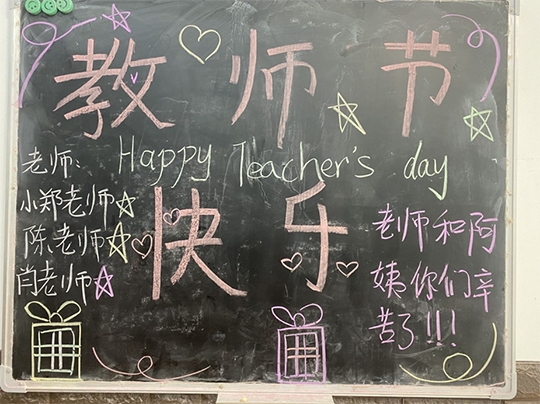 教师节
老师：
Happy Teacher's day
小郑老师
陈老师
肖老师
快乐
老师和阿
姨你们辛
苦了!!!